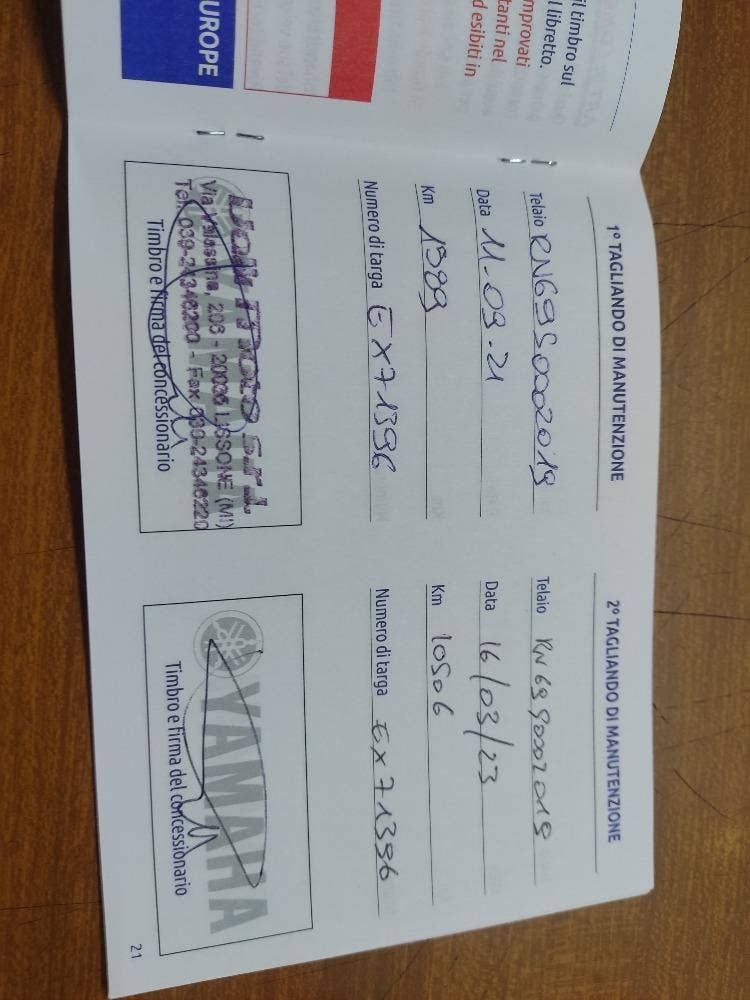 il timbro sul
l libretto.
mprovati
tanti nel
d esibiti in
UROPE
1º TAGLIANDO DI MANUTENZIONE
Telaio RN69S0002019
Data 11-09-21
Km 1989
Numero di targa EX71396
S.r.l.
Via Valassina, 206 - 20035 LISSONE (MI)
Tel. 039-24346200 - Fax 039-24346220
Timbro e firma del concessionario
2º TAGLIANDO DI MANUTENZIONE
Telaio RN69S0002019
Data 16/03/23
Km 10506
Numero di targa EX71396
YAMAHA
Timbro e firma del concessionario
21